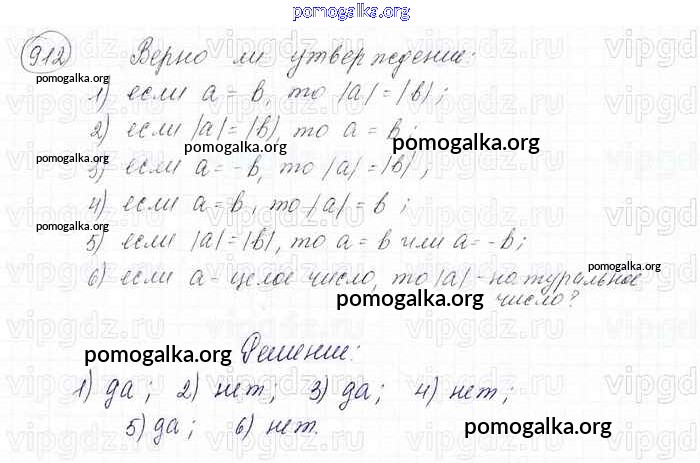 pomogalka.org
912 Верно ли утверждение:
pomogalka.org
1) если a = b, то |a| = |b|;
2) если |a| = |b|, то a = b;
pomogalka.org pomogalka.org
pomogalka.org
3) если a = -b, то |a| = |b|;
4) если a = b, то |a| = b;
pomogalka.org
5) если |a| = |b|, то a = b или a = -b;
pomogalka.org
6) если a - целое число, то |a| - натуральное
pomogalka.org число?
pomogalka.org Решение:
1) да; 2) нет; 3) да; 4) нет;
5) да; 6) нет.
pomogalka.org
vipgdz.ru